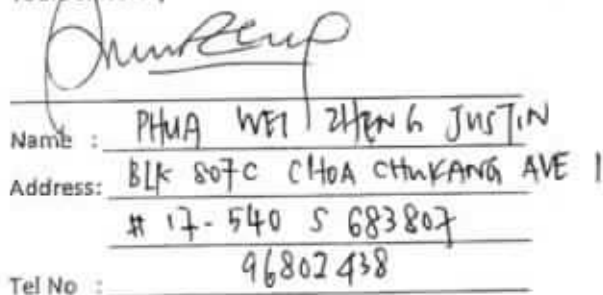 Name : PHUA WEI ZHENG JUSTIN
Address: BLK 807C CHOA CHUKANG AVE 1
# 17-540 S 683807
Tel No : 96802438